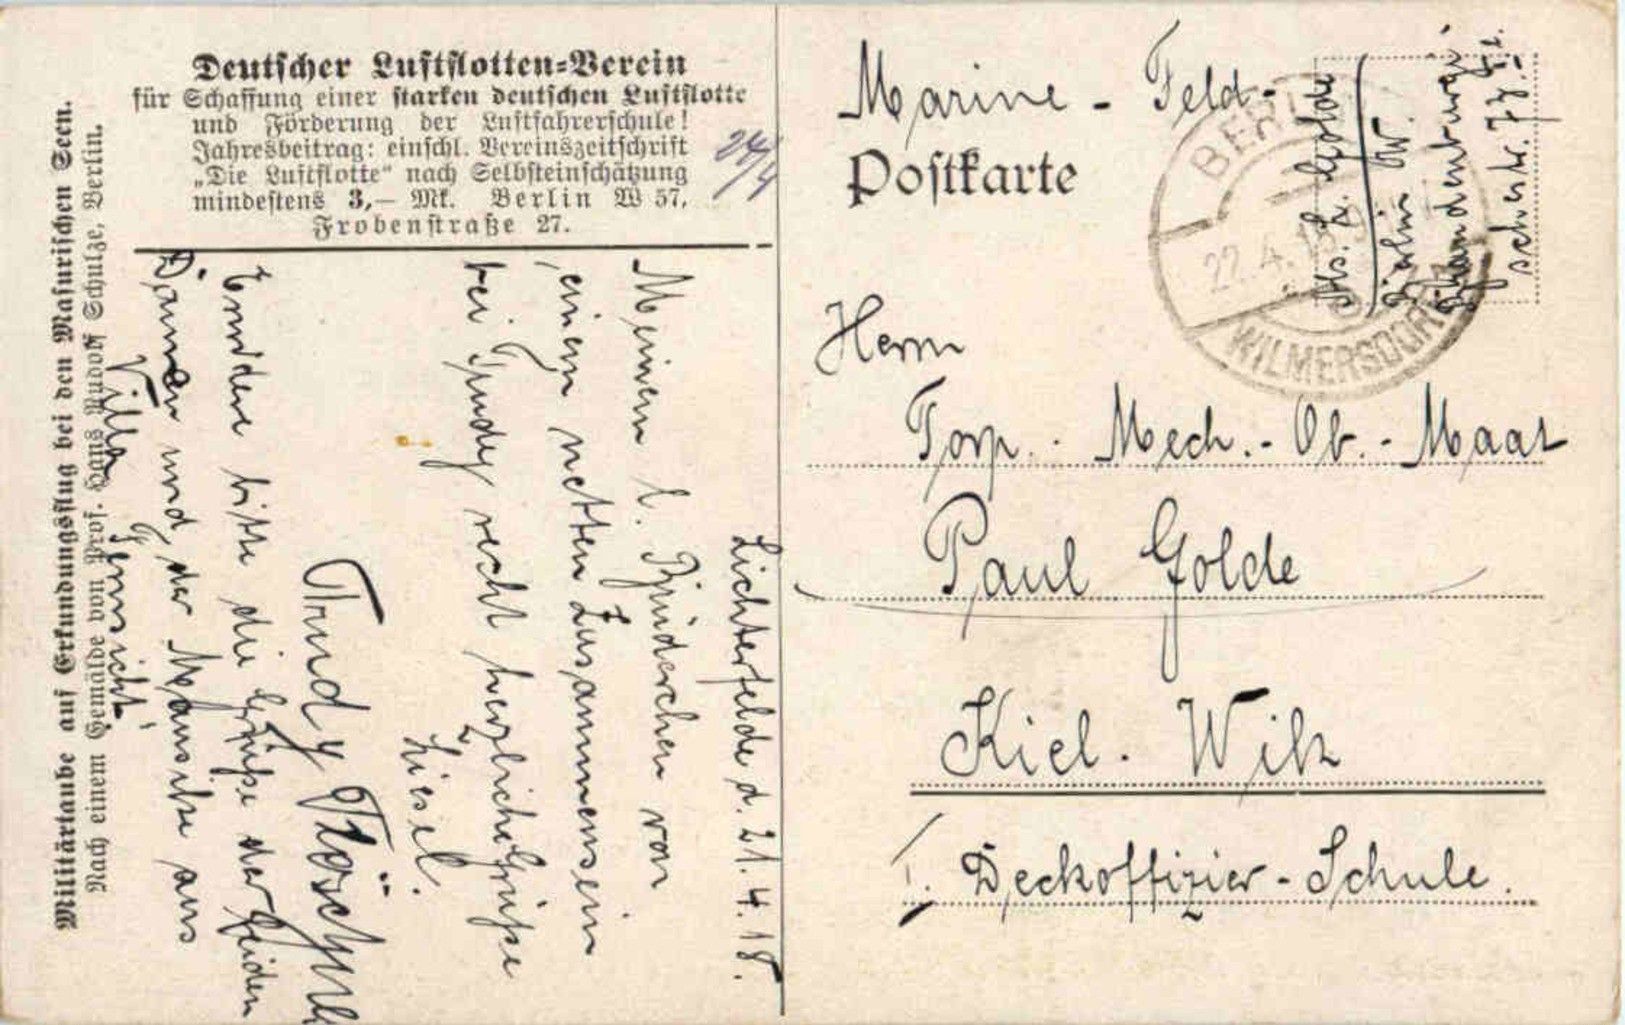 Deutscher Luftflotten-Verein
für Schaffung einer starken deutschen Luftflotte
und Förderung der Luftfahrerschule!
Jahresbeitrag: einschl. Vereinszeitschrift
„Die Luftflotte“ nach Selbsteinschätzung
mindestens 3,— Mk. Berlin W 57,
Frobenstraße 27.
24/4
Militärtaube auf Erkundungsflug bei den Masurischen Seen.
Nach einem Gemälde von Prof. Hans Rudolf Schulze, Berlin.
Lichterfelde d. 21.4.18.
Meinem l. Brüderchen von
einem netten Zusammensein
bei Trudy recht herzliche Grüße
Liesel.
Trudy
bitte die Grüße der beiden
und der
aus
Villa
Marine - Feld-
Postkarte
BERLIN
22.4.18
WILMERSDORF
Abs. L. Golde
Berlin W.
Brandenburgi-
schestr. 77. II.
Herrn
Torp. - Mech. - Ob. - Maat
Paul Golde
Kiel. Wik
I. Deckoffizier - Schule.